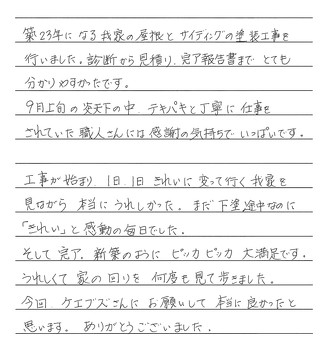 築23年になる我家の屋根とサイディングの塗装工事を
行いました。診断から見積り、完了報告書までとても
分かりやすかったです。
9月上旬の炎天下の中、テキパキと丁寧に仕事を
されていた職人さんには感謝の気持ちでいっぱいです。
工事が始まり、1日、1日きれいに変って行く我家を
見ながら本当にうれしかった。まだ下塗途中なのに
「きれい」と感動の毎日でした。
そして完了、新築のようにピッカピッカ大満足です。
うれしくて家の回りを何度も見て歩きました。
今回、ケエブズさんにお願いして本当に良かったと
思います。ありがとうございました。